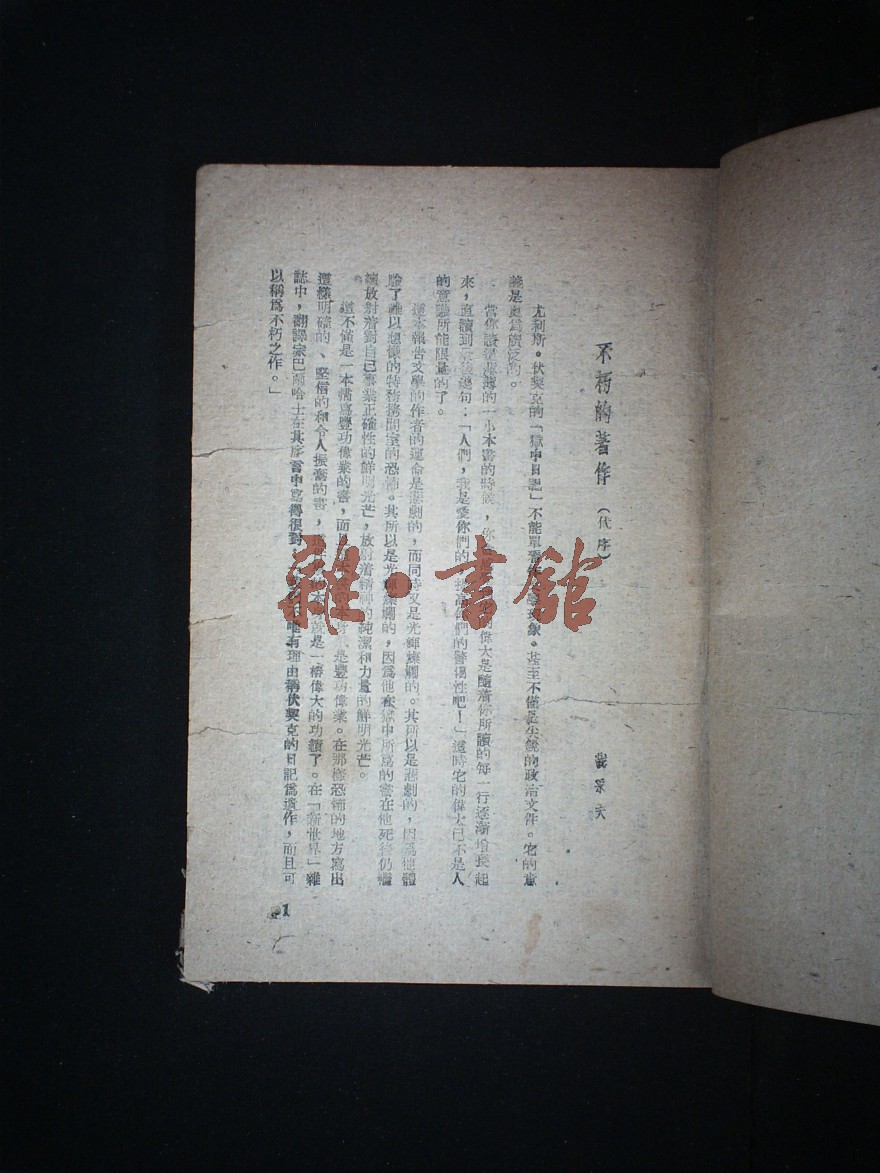 不朽的著作（代序）
尤利斯。伏契克的「獄中日記」不能單看作文學現象。甚至不僅是尖銳的政治文件。它的意
義是更爲廣泛的。
當你讀這本薄薄的一小本書的時候，你 偉大是隨着你所讀的每一行逐漸增長起
來，直讀到末後幾句：「人們，我是愛你們的 們的警惕性吧！」這時它的偉大已不是人
的意識所能限量的了。
這本報告文學的作者的運命是悲劇的，而同時又是光輝燦爛的。其所以是悲劇的，因爲他體
驗了難以想像的特務拷問室的恐怖。其所以是光輝燦爛的，因爲他在獄中所寫的書在他死後仍繼
續放射着對自己事業正確性的鮮明光芒，放射着精神的純潔和力量的鮮明光芒。
這不僅是一本描寫豐功偉業的書，而且 本身 是豐功偉業。在那樣恐怖的地方寫出
這樣明確的、堅信的和令人振奮的書， 本 就是一樁偉大的功績了。在「新世界」雜
誌中，翻譯家巴爾哈士在其序言中寫得很對： 有理由稱伏契克的日記爲遺作，而且可
以稱爲不朽之作。」
1
雜·書館